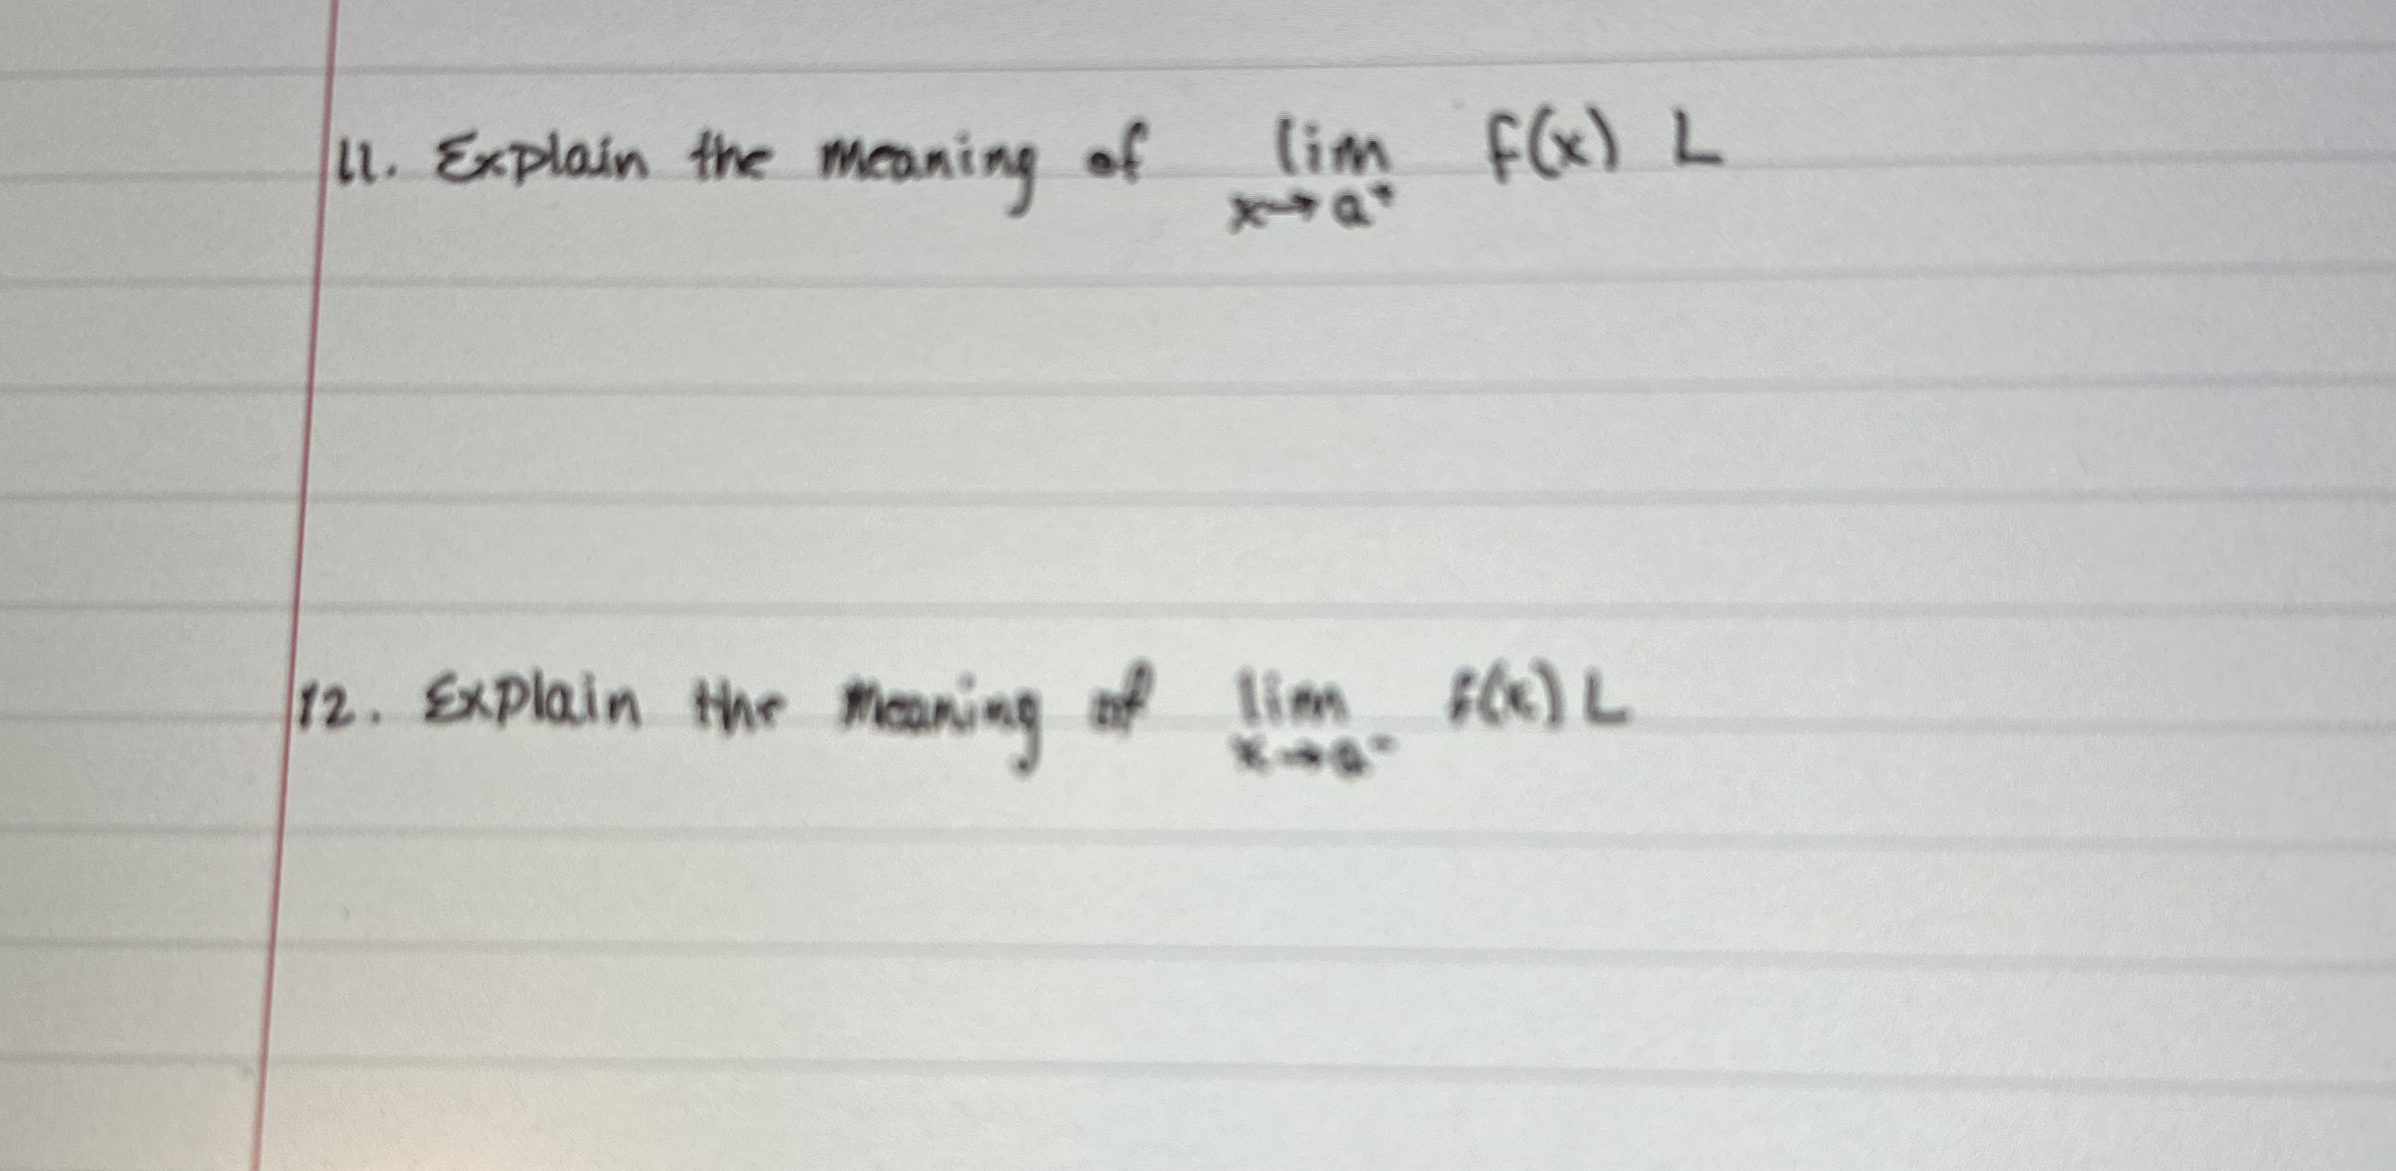 11. Explain the meaning of lim f(x) L
x→a⁺
12. Explain the meaning of lim f(x) L
x→a⁻